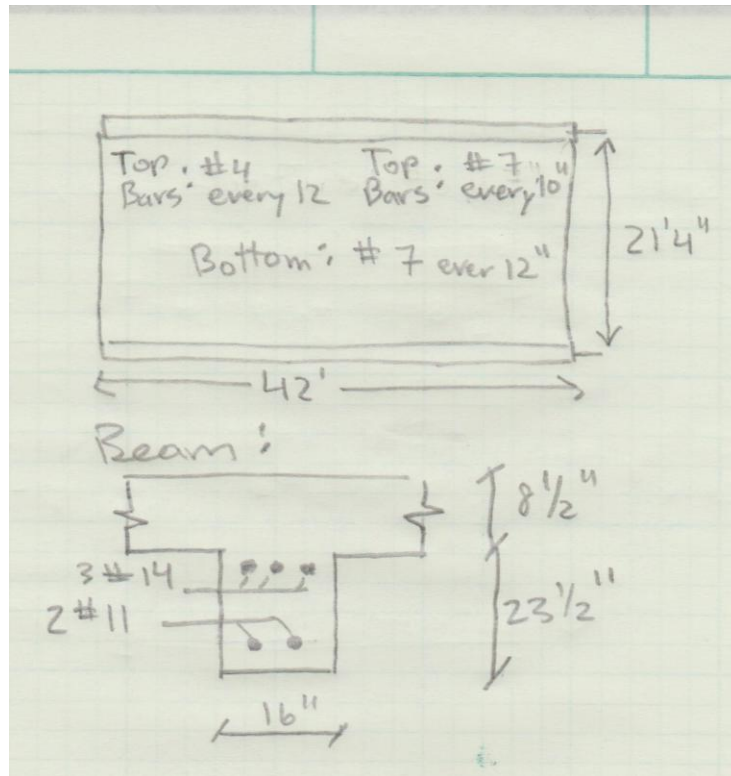 Top: #4
Bars: every 12
Top: #7
Bars: every 10"
Bottom: # 7 ever 12"
21'4"
42'
Beam:
8 1/2"
3 #14
2 #11
23 1/2"
16"